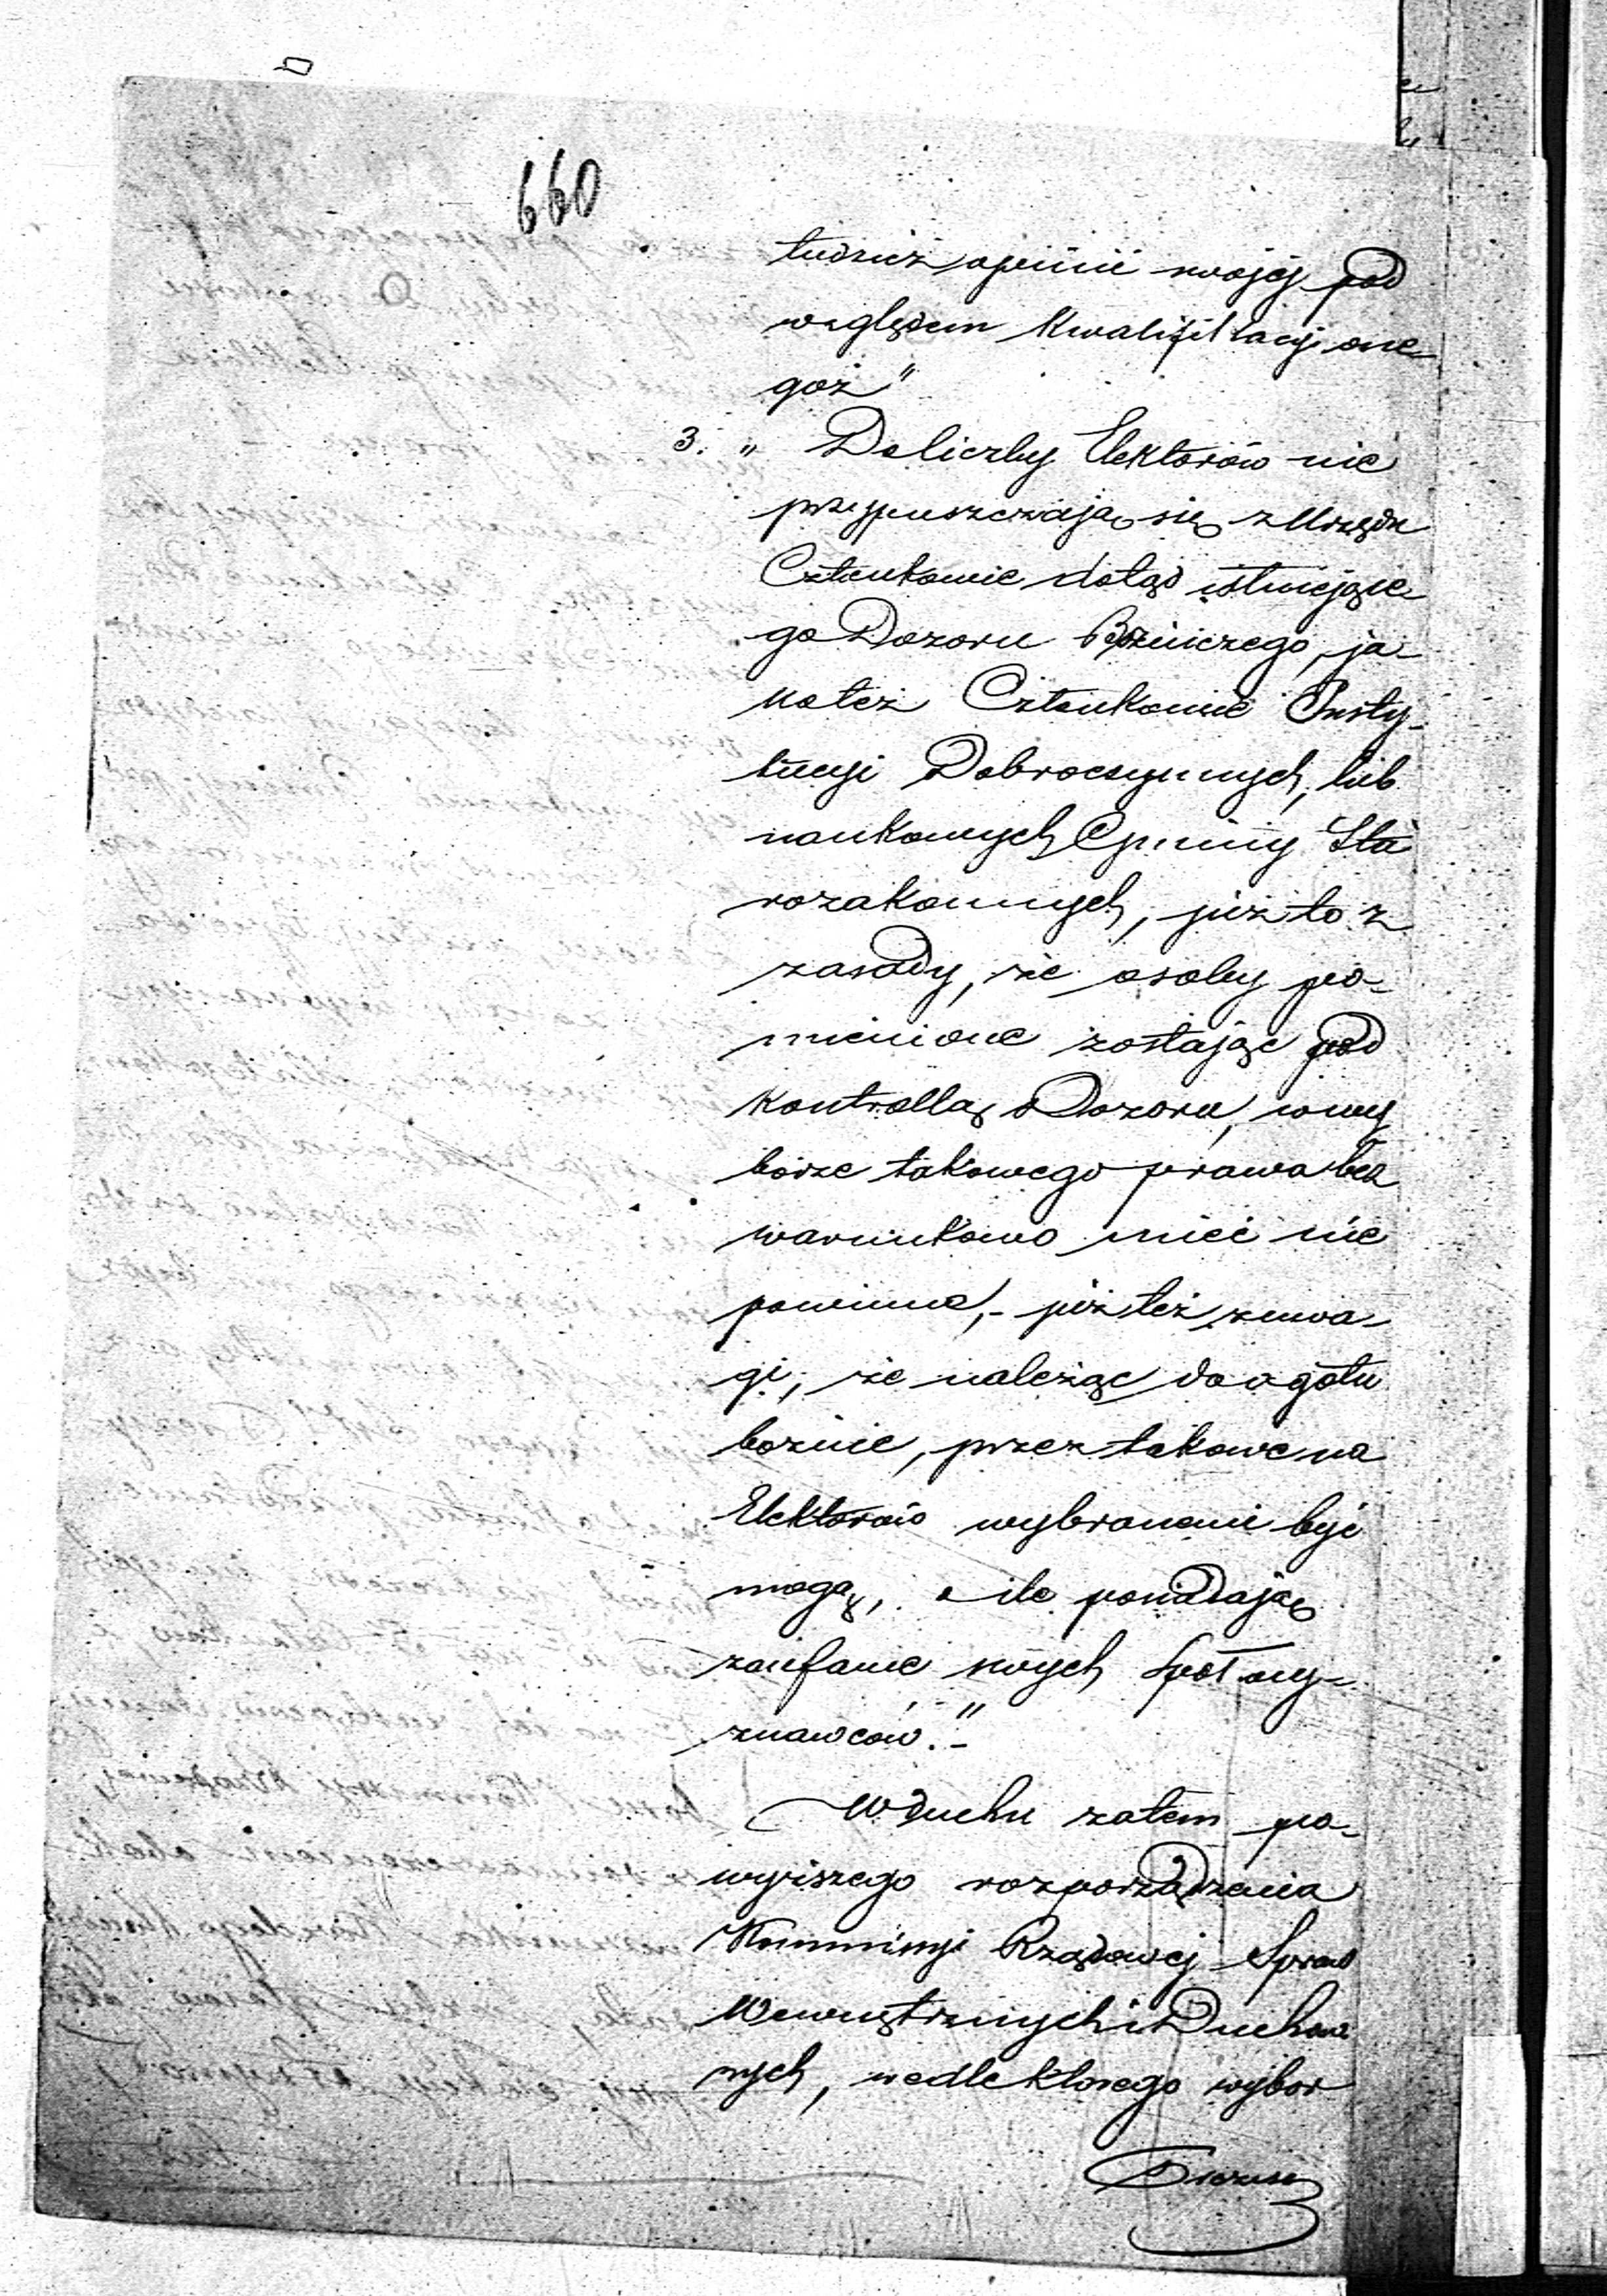 660
tudzież opinii swojej pod
względem Kwalifikacyi one-
goż"
3. " Do liczby Elektorów nie
przypuszczają się z Urzędu
Członkowie dotąd istniejące-
go Dozoru Bożniczego, ja-
koteż Członkowie Insty-
tucyi Dobroczynnych, lub
naukowych Gminy Sta
rozakonnych, już to z
zasady, że osoby po-
mienione zostając pod
Kontrollą Dozoru, w wy
borze takowego prawa bez
warunkowo mieć nie
powinne,- już też z uwa-
gi, że należąc do ogółu
bożnic, przez takowe na
Elektorów wybranemi być
mogą, o ile posiadają
zaufanie swych spółwy-
znawców.-"
W duchu zatem po-
wyższego rozporządzenia
Kommissyi Rządowej Spraw
Wewnętrznych i Duchow
nych, wedle którego wybór